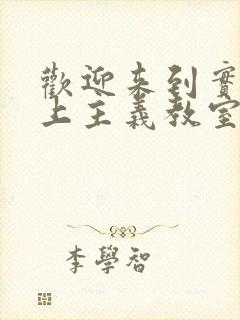 歡迎來到實
上主義教室
李學智